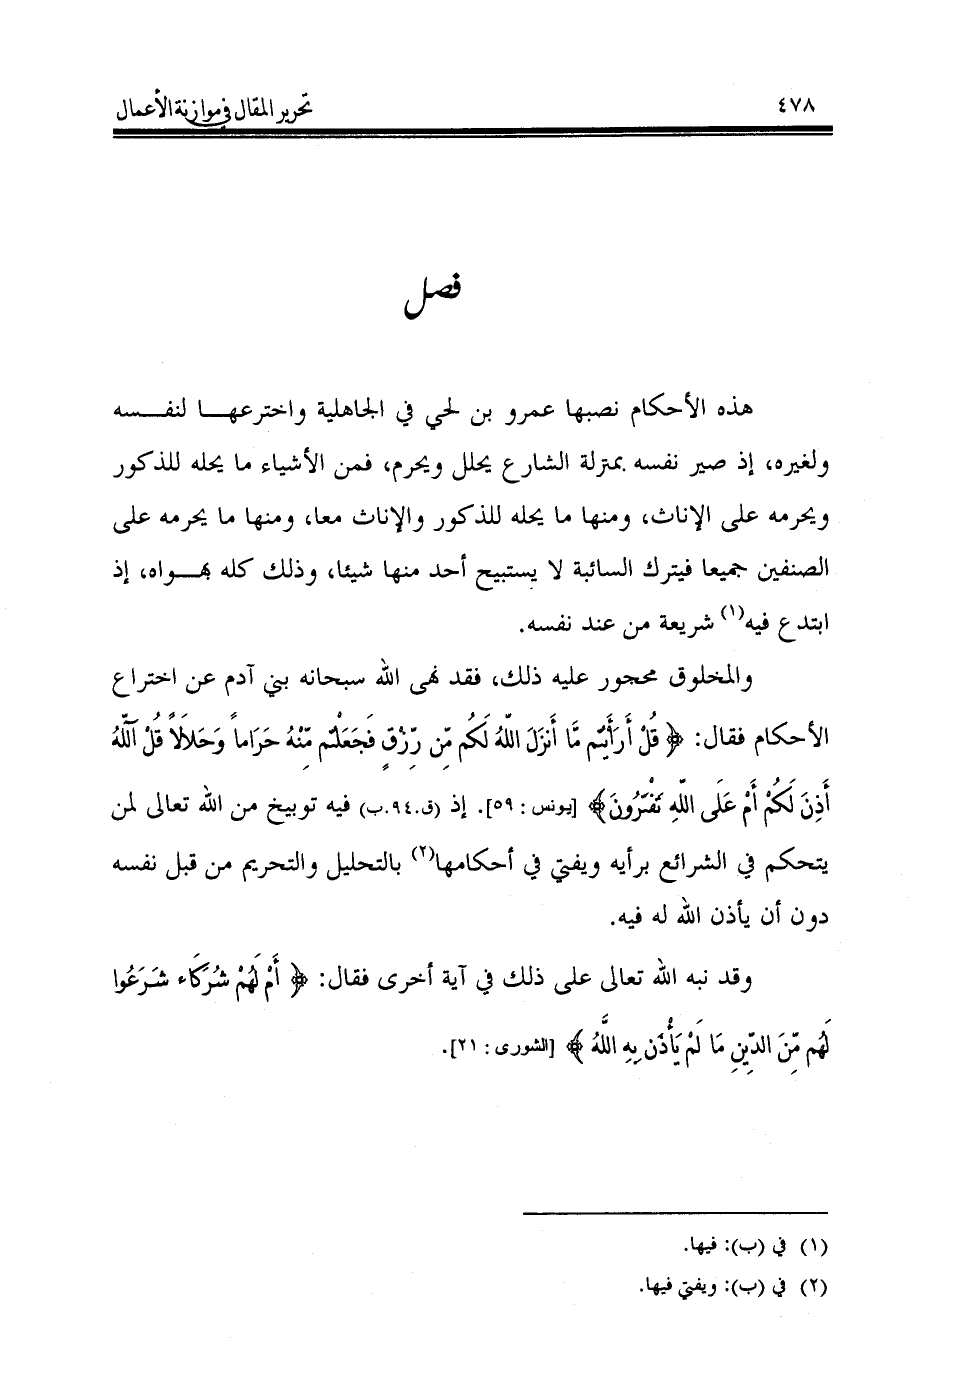 ٤٧٨
تحرير المقال في موازنة الأعمال
فصل
هذه الأحكام نصبها عمرو بن لحي في الجاهلية واخترعهـــا لنفـــسه
ولغيره، إذ صير نفسه بمنزلة الشارع يحلل ويحرم، فمن الأشياء ما يحله للذكور
ويحرمه على الإناث، ومنها ما يحله للذكور والإناث معا، ومنها ما يحرمه على
الصنفين جميعا فيترك السائبة لا يستبيح أحد منها شيئا، وذلك كله بهـــواه، إذ
ابتدع فيه(١) شريعة من عند نفسه.
والمخلوق محجور عليه ذلك، فقد نهى الله سبحانه بني آدم عن اختراع
الأحكام فقال: ﴿ قُلْ أَرَأَيْتُم مَّا أَنزَلَ اللَّهُ لَكُم مِّن رِّزْقٍ فَجَعَلْتُم مِّنْهُ حَرَاماً وَحَلَالاً قُلْ آللَّهُ
أَذِنَ لَكُمْ أَمْ عَلَى اللَّهِ تَفْتَرُونَ﴾ [يونس: ٥٩]. إذ (ق.٩٤.ب) فيه توبيخ من الله تعالى لمن
يتحكم في الشرائع برأيه ويفتي في أحكامها(٢) بالتحليل والتحريم من قبل نفسه
دون أن يأذن الله له فيه.
وقد نبه الله تعالى على ذلك في آية أخرى فقال: ﴿ أَمْ لَهُمْ شُرَكَاء شَرَعُوا
لَهُم مِّنَ الدِّينِ مَا لَمْ يَأْذَن بِهِ اللَّهُ ﴾ [الشورى: ٢١].
(١) في (ب): فيها.
(٢) في (ب): ويفتي فيها.